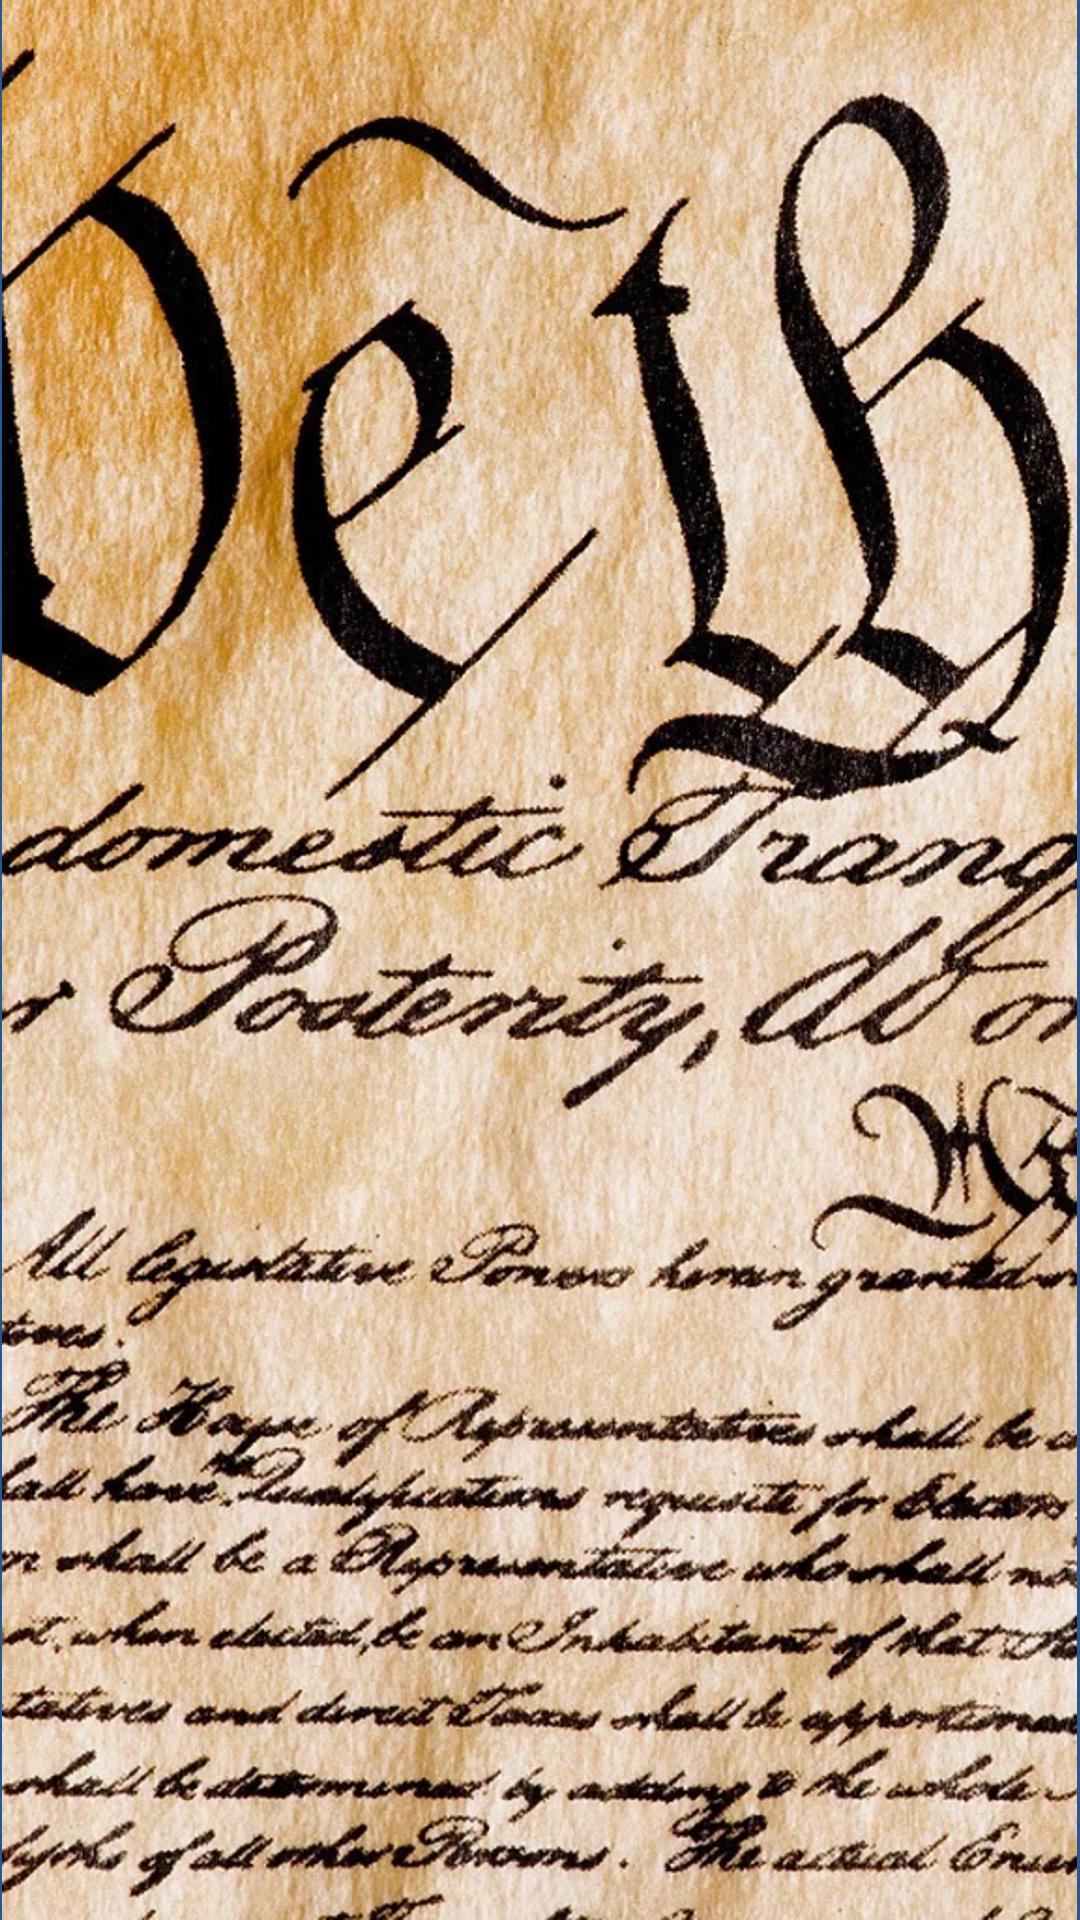 We th
domestic Tranq
r Posterity, do or
All legislative Powers herein granted
tives.
The House of Representatives shall be c
hall have the Qualifications requisite for Electors
n shall be a Representative who shall not
ot, when elected, be an Inhabitant of that Sta
tatives and direct Taxes shall be apportioned
shall be determined by adding to the whole
fifths of all other Persons. The actual Enum